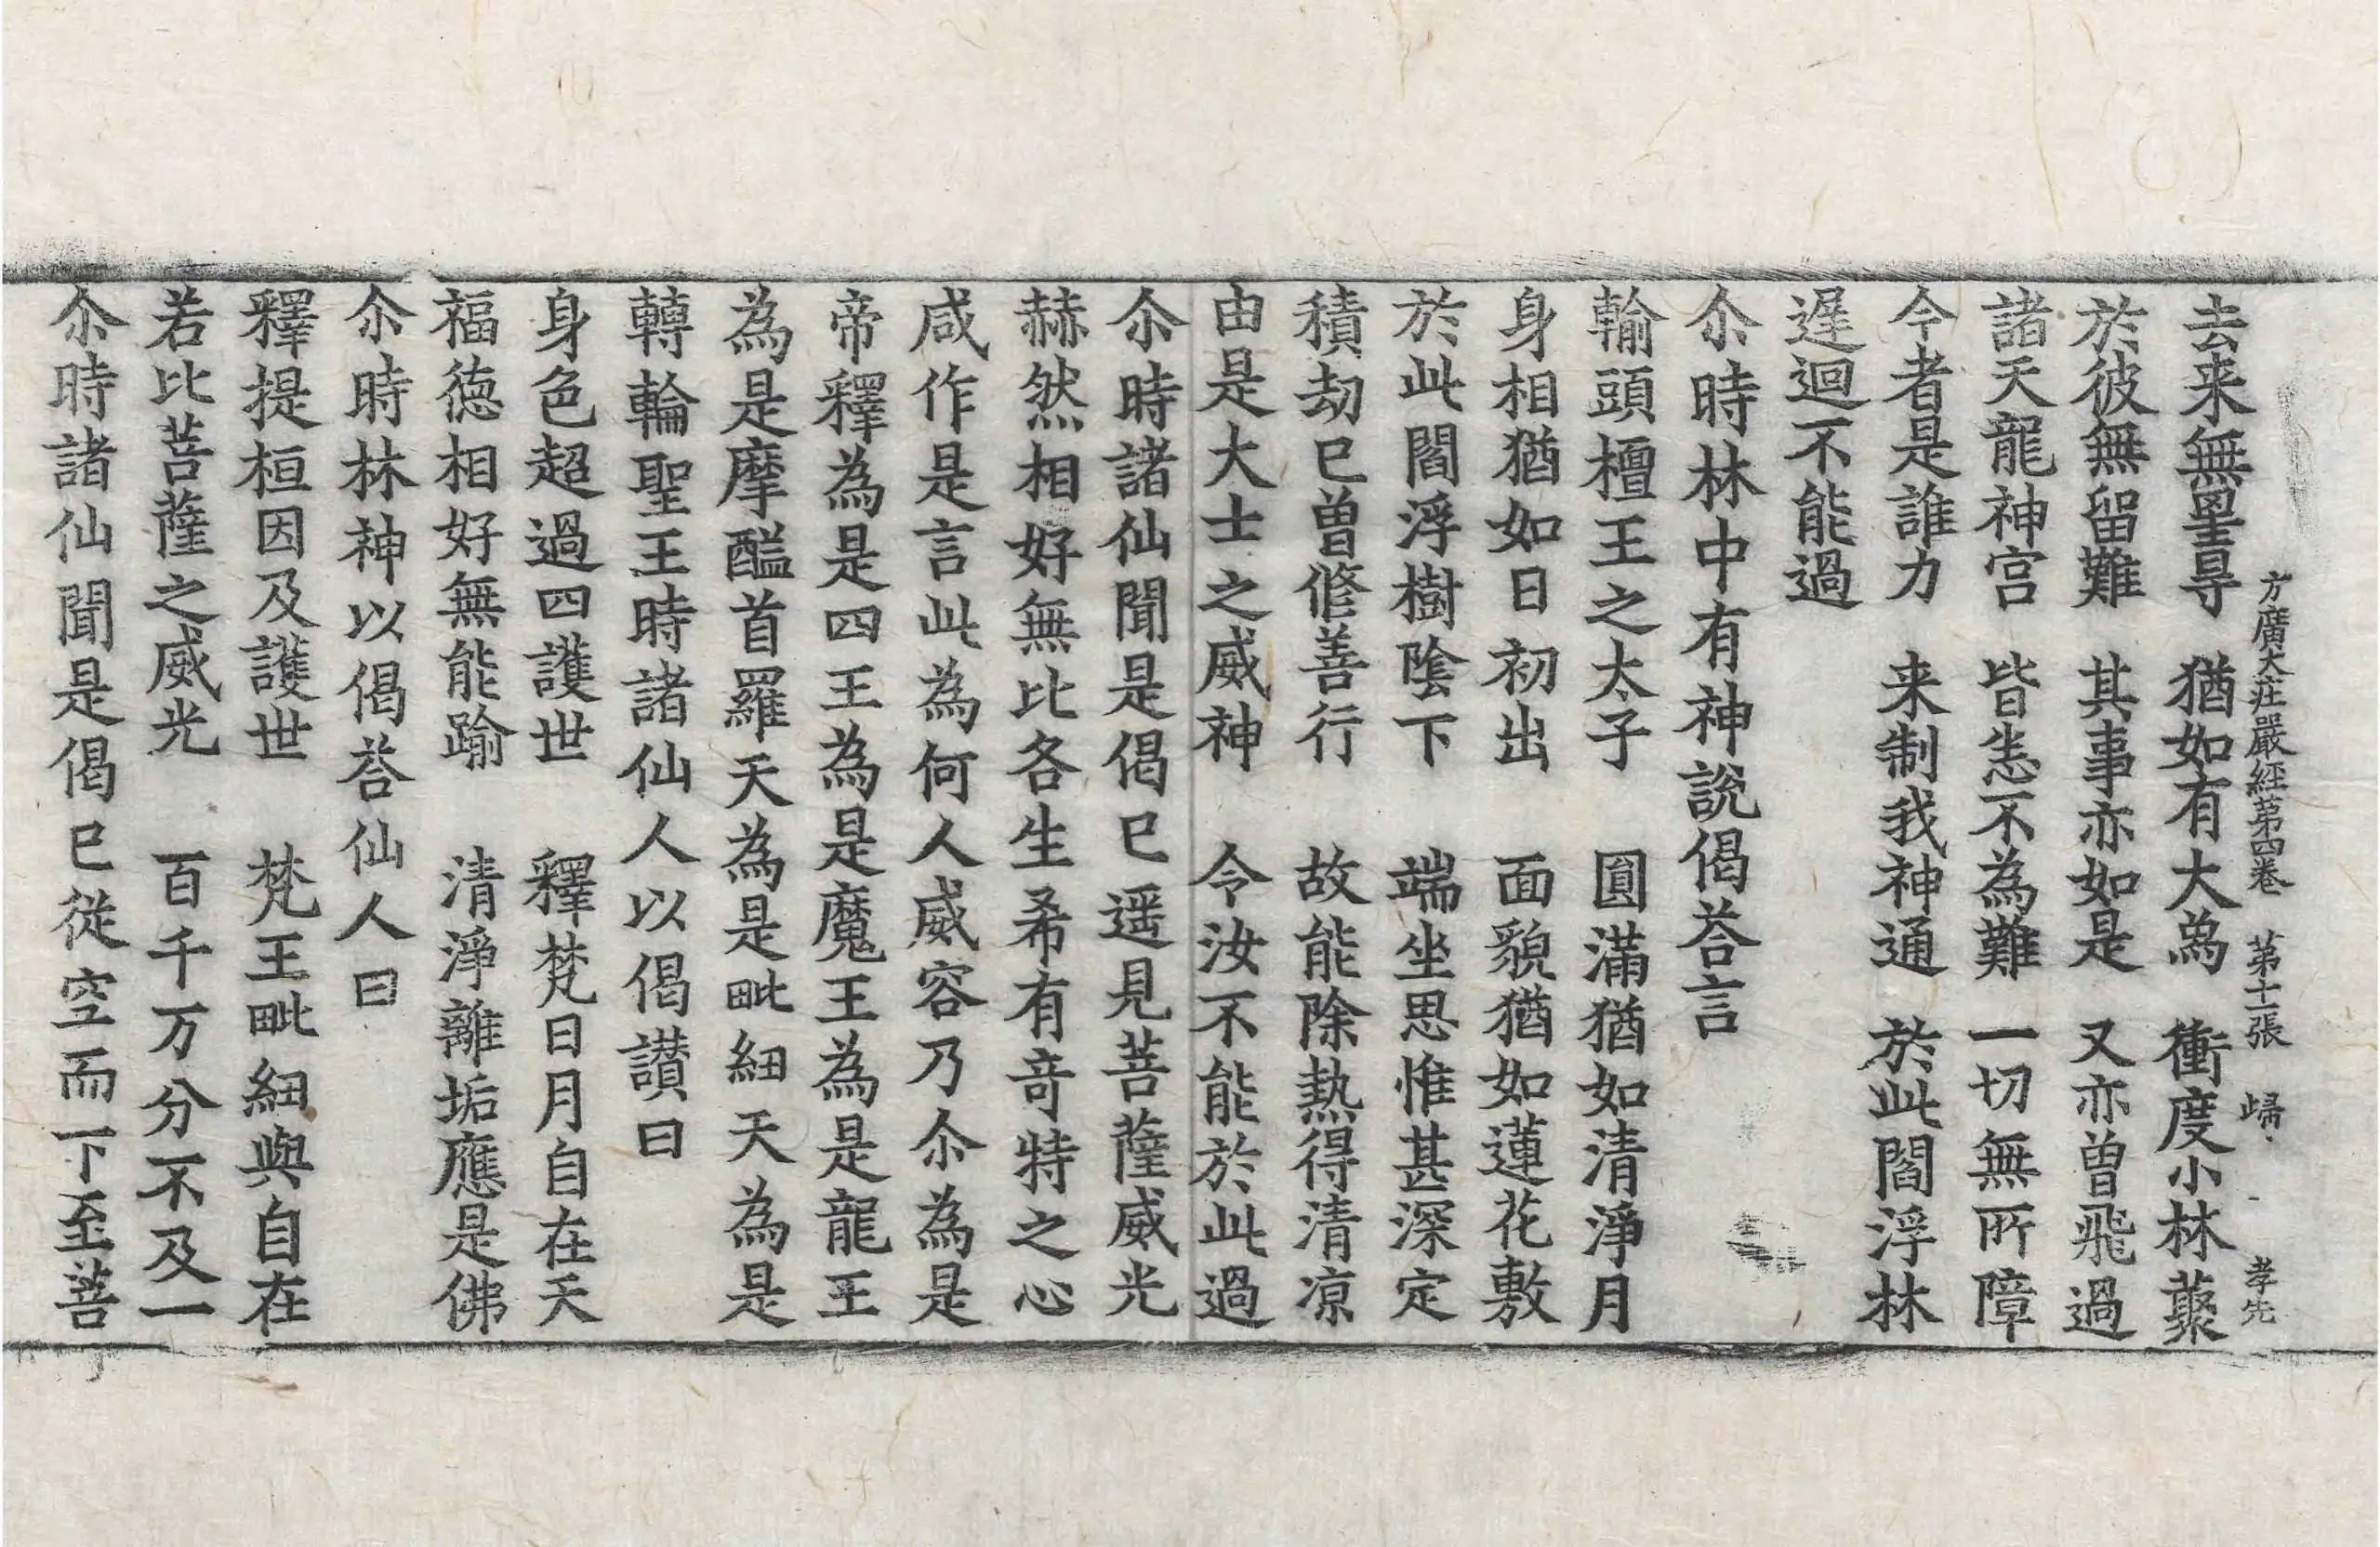 方廣大莊嚴經第四卷　第十一張　歸　孝先
去来無罣㝵　猶如有大爲　衝度小林藂
於彼無留難　其事亦如是　又亦曾飛過
諸天龍神宫　皆恙不為難　一切無所障
今者是誰力　来制我神通　於此閻浮林
遅迴不能過
尒時林中有神說偈荅言
輸頭檀王之太子　圓滿猶如清淨月
身相猶如日初出　面貌猶如蓮花敷
於此閻浮樹陰下　端坐思惟甚深定
積劫已曾修善行　故能除熱得清凉
由是大士之威神　令汝不能於此過
尒時諸仙聞是偈已遥見菩薩威光
赫然相好無比各生希有竒特之心
咸作是言此為何人威容乃尒為是
帝釋為是四王為是魔王為是龍王
為是摩醯首羅天為是毗紐天為是
轉輪聖王時諸仙人以偈讃曰
身色超過四護世　釋梵日月自在天
福德相好無能踰　清淨離垢應是佛
尒時林神以偈荅仙人曰
釋提桓因及護世　梵王毗紐與自在
若比菩薩之威光　百千万分不及一
尒時諸仙聞是偈已從空而下至菩